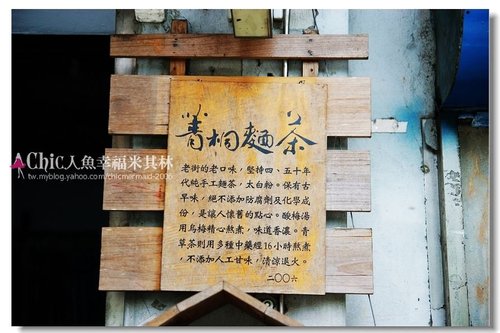 菁桐麵茶
老街的老口味，堅持四、五十年
代純手工麵茶，太白粉。保有古
早味，絕不添加防腐劑及化學成
份，是讓人懷舊的點心。酸梅湯
用烏梅精心熬煮，味道香濃。青
草茶則用多種中藥經16小時熬煮
，不添加人工甘味，清涼退火。
二〇〇六
AChic人魚幸福米其林
tw.myblog.yahoo.com/chicmermaid-2006